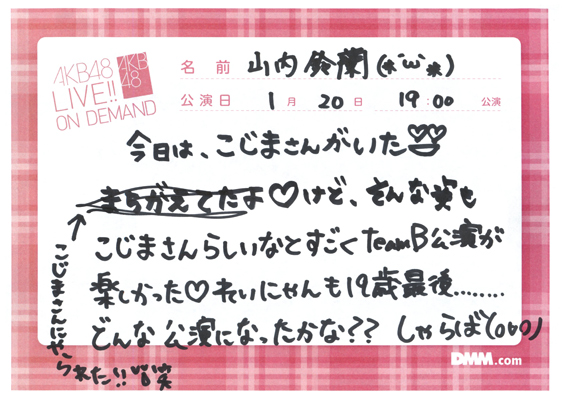 AKB48
LIVE!!
ON DEMAND
AKB
48
名前 山内鈴蘭(*´ω`*)
公演日 1月20日 19:00公演
今日は、こじまさんがいた
まちがえてたよ♡けど、そんな笑も
こじまさんらしいなとすごくteamB公演が
楽しかった♡れいにゃんも19歳最後........
どんな公演になったかな?? しゃらば(o^o)ノ
こじまさんにやられた!! 笑
DMM.com